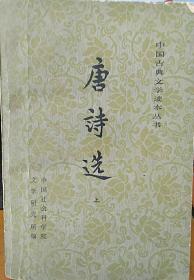 中国古典文学读本丛书
唐诗选
上
中国社会科学院
文学研究所编